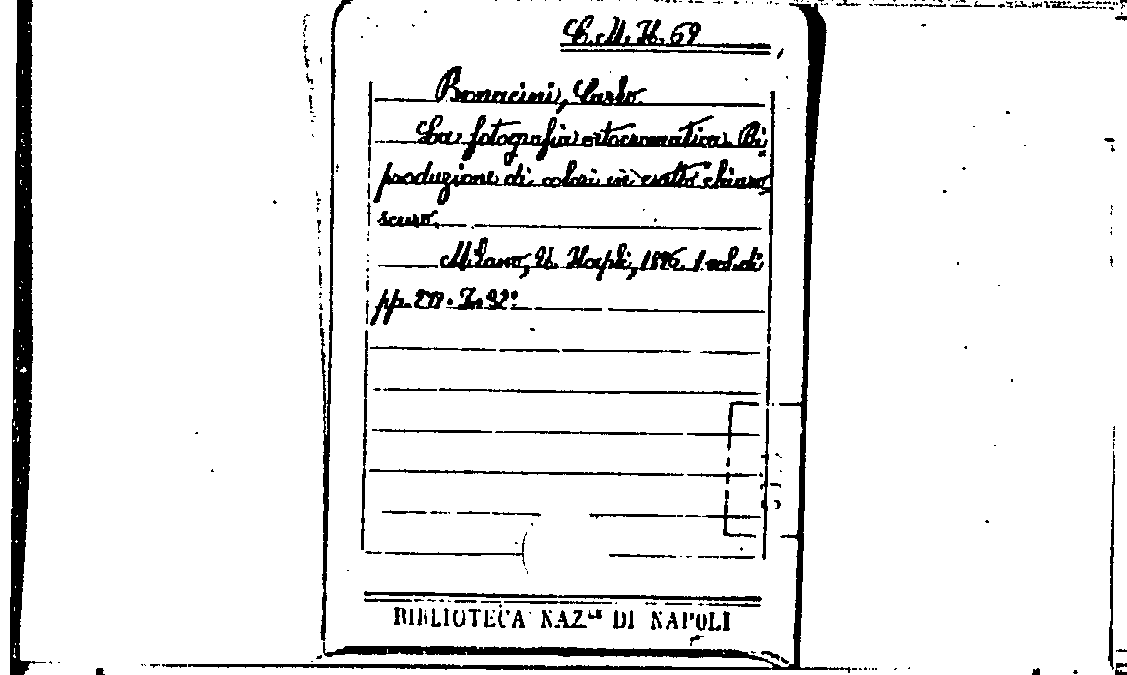 C. M. H. 69
Bonacini, Carlo
La fotografia ortocromatica. Ri
produzione di colori in esatto chiaro
scuro.
Milano, U. Hoepli, 1 vol. di
pp. In 32°
BIBLIOTECA NAZ.LE DI NAPOLI